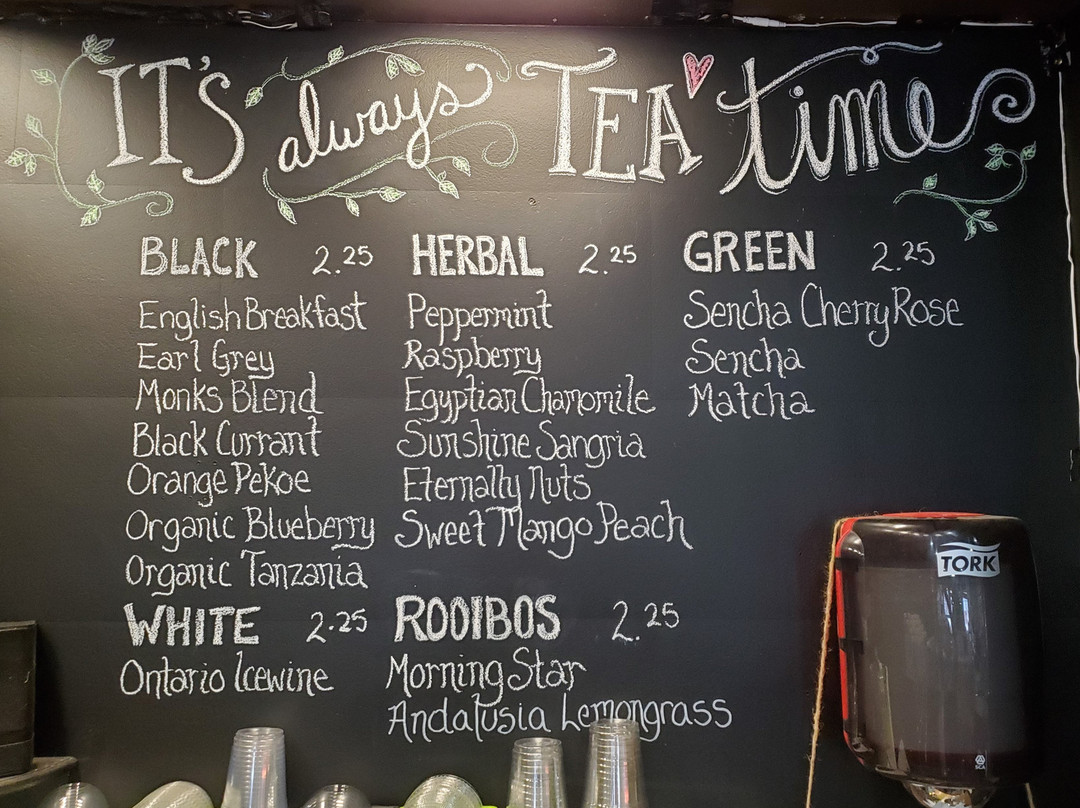 IT'S always TEA time
BLACK 2.25
English Breakfast
Earl Grey
Monks Blend
Black Currant
Orange Pekoe
Organic Blueberry
Organic Tanzania
WHITE 2.25
Ontario Icewine
HERBAL 2.25
Peppermint
Raspberry
Egyptian Chamomile
Sunshine Sangria
Eternally Nuts
Sweet Mango Peach
ROOIBOS 2.25
Morning Star
Andalusia Lemongrass
GREEN 2.25
Sencha Cherry Rose
Sencha
Matcha
TORK
SCA